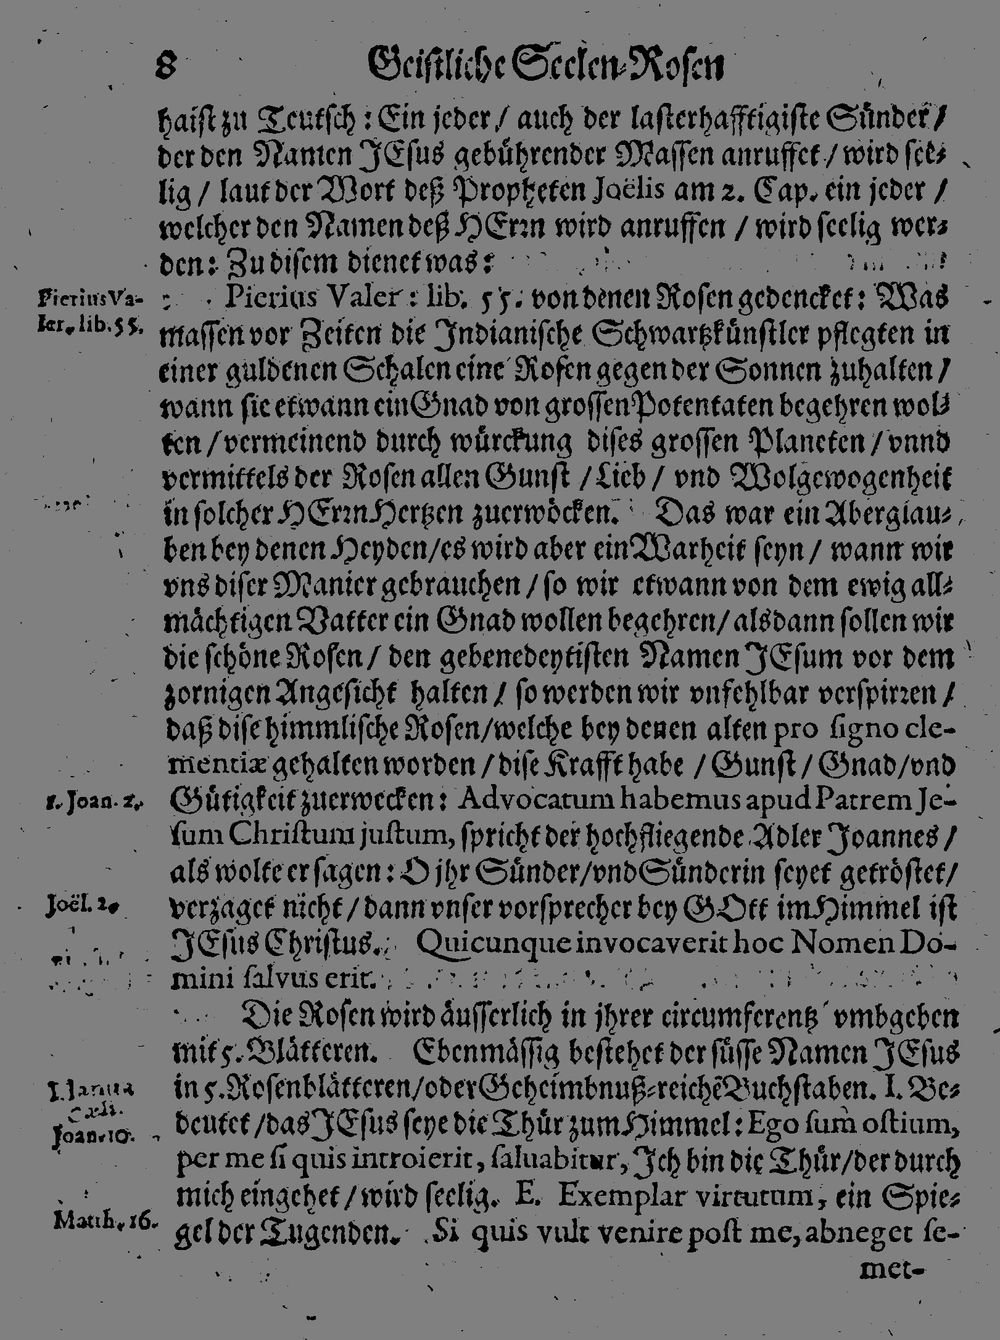 8 Geistliche Seelen-Rosen
haist zu Teutsch: Ein jeder / auch der lasterhafftigiste Sünder /
der den Namen JEsus gebührender Massen anruffet / wird see-
lig / laut der Wort deß Propheten Joëlis am 2. Cap. ein jeder /
welcher den Namen deß HErrn wird anruffen / wird seelig wer-
den: Zu disem dienet was:
Pierius Va-
ler. lib. 55.
Pierius Valer: lib. 55. von denen Rosen gedencket: Was
massen vor Zeiten die Indianische Schwartzkünstler pflegten in
einer guldenen Schalen eine Rosen gegen der Sonnen zuhalten /
wann sie etwann ein Gnad von grossen Potentaten begehren wol-
ten / vermeinend durch würckung dises grossen Planeten / vnnd
vermittels der Rosen allen Gunst / Lieb / vnd Wolgewogenheit
in solcher HErrn Hertzen zuerwöcken. Das war ein Aberglau-
ben bey denen Heyden / es wird aber ein Warheit seyn / wann wir
vns diser Manier gebrauchen / so wir etwann von dem ewig all-
mächtigen Vatter ein Gnad wollen begehren / alsdann sollen wir
die schöne Rosen / den gebenedeytisten Namen JEsum vor dem
zornigen Angesicht halten / so werden wir vnfehlbar verspirren /
daß dise himmlische Rosen / welche bey denen alten pro signo cle-
mentiæ gehalten worden / dise Krafft habe / Gunst / Gnad / vnd
1. Joan. 2.
Gütigkeit zuerwecken: Advocatum habemus apud Patrem Je-
sum Christum justum, spricht der hochfliegende Adler Joannes /
als wolte er sagen: O jhr Sünder / vnd Sünderin seyet getröstet /
Joël. 2.
verzaget nicht / dann vnser vorsprecher bey GOtt im Himmel ist
JEsus Christus. Quicunque invocaverit hoc Nomen Do-
mini salvus erit.
Die Rosen wird äusserlich in jhrer circumferentz vmbgeben
mit 5. Blätteren. Ebenmässig bestehet der süsse Namen JEsus
I. Janua
cæli.
in 5. Rosenblätteren / oder Geheimbnuß-reichē Buchstaben. I. Be-
Joan. 10.
deutet / das JEsus seye die Thür zum Himmel: Ego sum ostium,
per me si quis introierit, saluabitur, Ich bin die Thür / der durch
mich eingehet / wird seelig. E. Exemplar virtutum, ein Spie-
Matth. 16.
gel der Tugenden. Si quis vult venire post me, abneget se-
met-